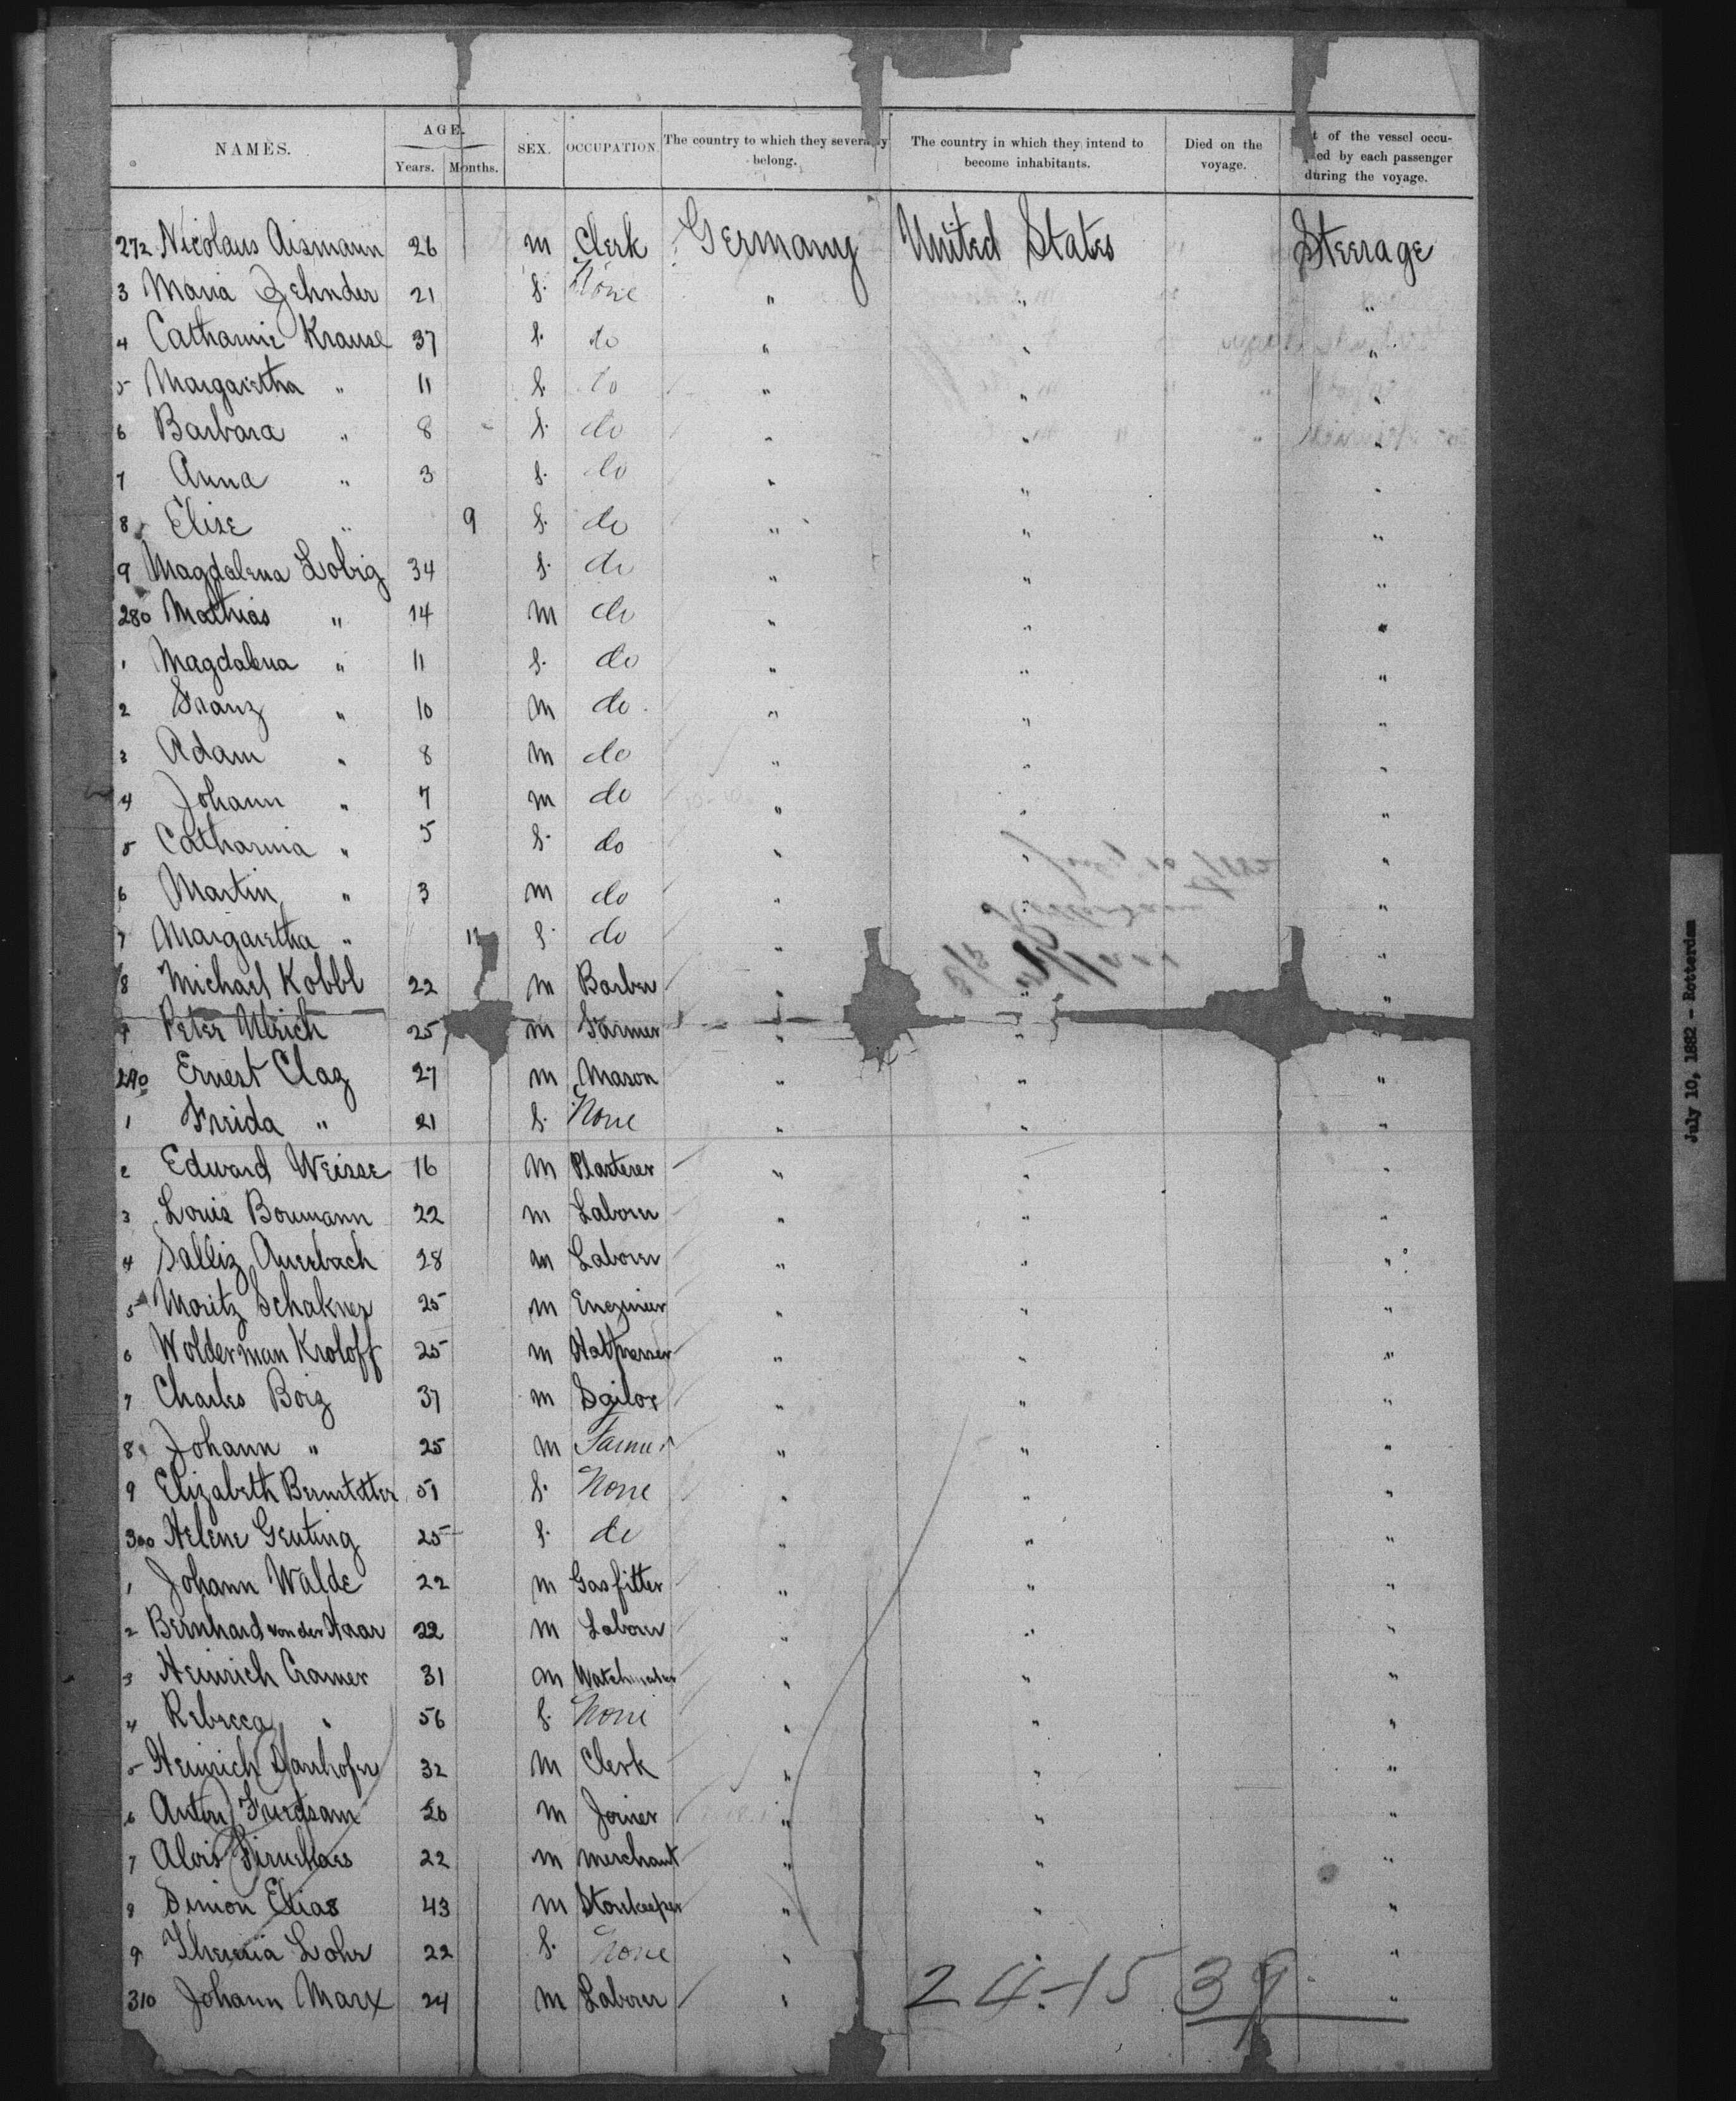 NAMES. AGE. Years. Months. SEX. OCCUPATION. The country to which they severally belong. The country in which they intend to become inhabitants. Died on the voyage. of the vessel occu- by each passenger during the voyage.
272 Nicolaus Aismann 26 m Clerk Germany United States Steerage
3 Maria Zehnder 21 f. None " " "
4 Catharine Krause 37 f. do " " "
5 Margaretha " 11 f. do " " "
6 Barbara " 8 f. do " " "
7 Anna " 3 f. do " " "
8 Elise " 9 f. do " " "
9 Magdalena Lobig 34 f. do " " "
280 Mathias " 14 m do " " "
1 Magdalena " 11 f. do " " "
2 Franz " 10 m do " " "
3 Adam " 8 m do " " "
4 Johann " 7 m do " " "
5 Catharina " 5 f. do " " "
6 Martin " 3 m do " " "
7 Margaretha " f. do " "
8 Michael Kobbl 22 m Barber " " "
9 Peter Ulrich 25 m Farmer " "
290 Ernest Clag 27 m Mason " " "
1 Freida " 21 f. None " " "
2 Edward Weisse 16 m Plasterer " " "
3 Louis Boumann 22 m Laborer " " "
4 Salliz Auerbach 28 m Laborer " " "
5 Moritz Schakner 25 m Engineer " " "
6 Wolderman Kroloff 25 m Hatpresser " " "
7 Charles Boiz 37 m Sailor " " "
8 Johann " 25 m Farmer " " "
9 Elizabeth 51 f. None " " "
300 Helene Genting 25 f. do " " "
1 Johann Walde 22 m Gasfitter " " "
2 Bernhard von der Haar 22 m Laborer " " "
3 Heinrich Cramer 31 m Watchmaker " " "
4 Rebecca " 56 f. None " " "
5 Heinrich 32 m Clerk " " "
6 Anton Friedsam 20 m Joiner " " "
7 Alois 22 m Merchant " " "
8 Simon Elias 43 m Storekeeper " " "
9 Theresia Lohr 22 f. None " " "
310 Johann Marx 24 m Laborer " "
24-15 39
July 10, 1882 - Rotterdam